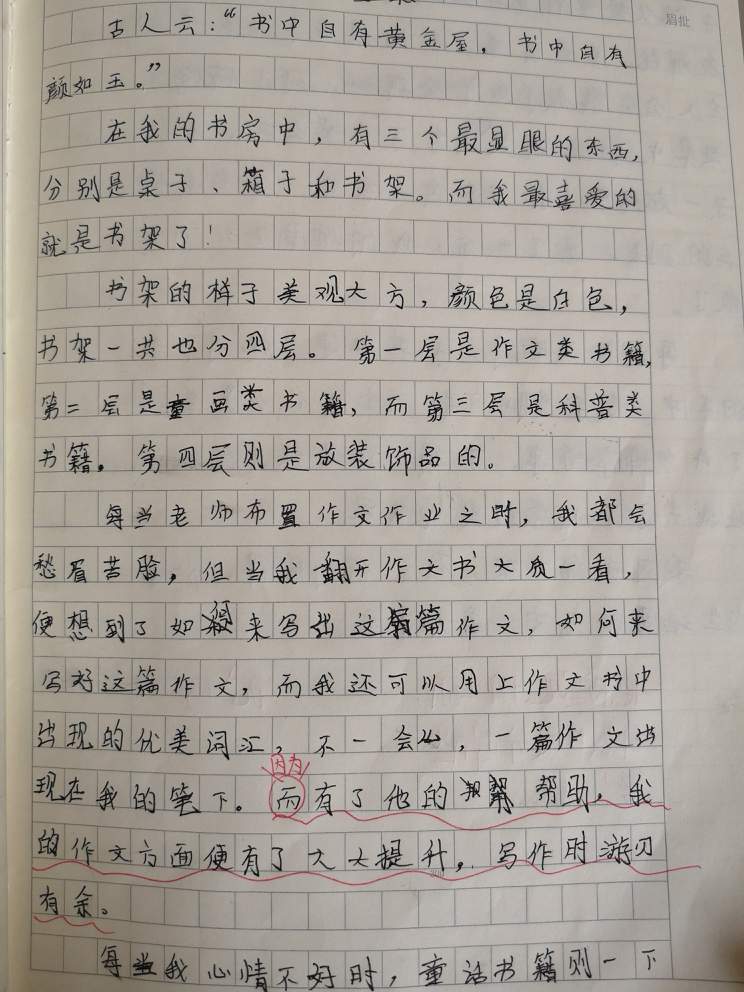 眉批
古人云：“书中自有黄金屋，书中自有
颜如玉。”
在我的书房中，有三个最显眼的东西，
分别是桌子、箱子和书架。而我最喜爱的
就是书架了！
书架的样子美观大方，颜色是白色，
书架一共也分四层。第一层是作文类书籍，
第二层是童画类书籍，而第三层是科普类
书籍。第四层则是放装饰品的。
每当老师布置作文作业之时，我都会
愁眉苦脸，但当我翻开作文书大质一看，
便想到了如来写出这篇作文，如何来
写好这篇作文，而我还可以用上作文书中
出现的优美词汇，不一会儿，一篇作文出
因为
现在我的笔下。而有了他的帮助，我
的作文方面便有了大大提升，写作时游刃
有余。
每当我心情不好时，童话书籍则一下